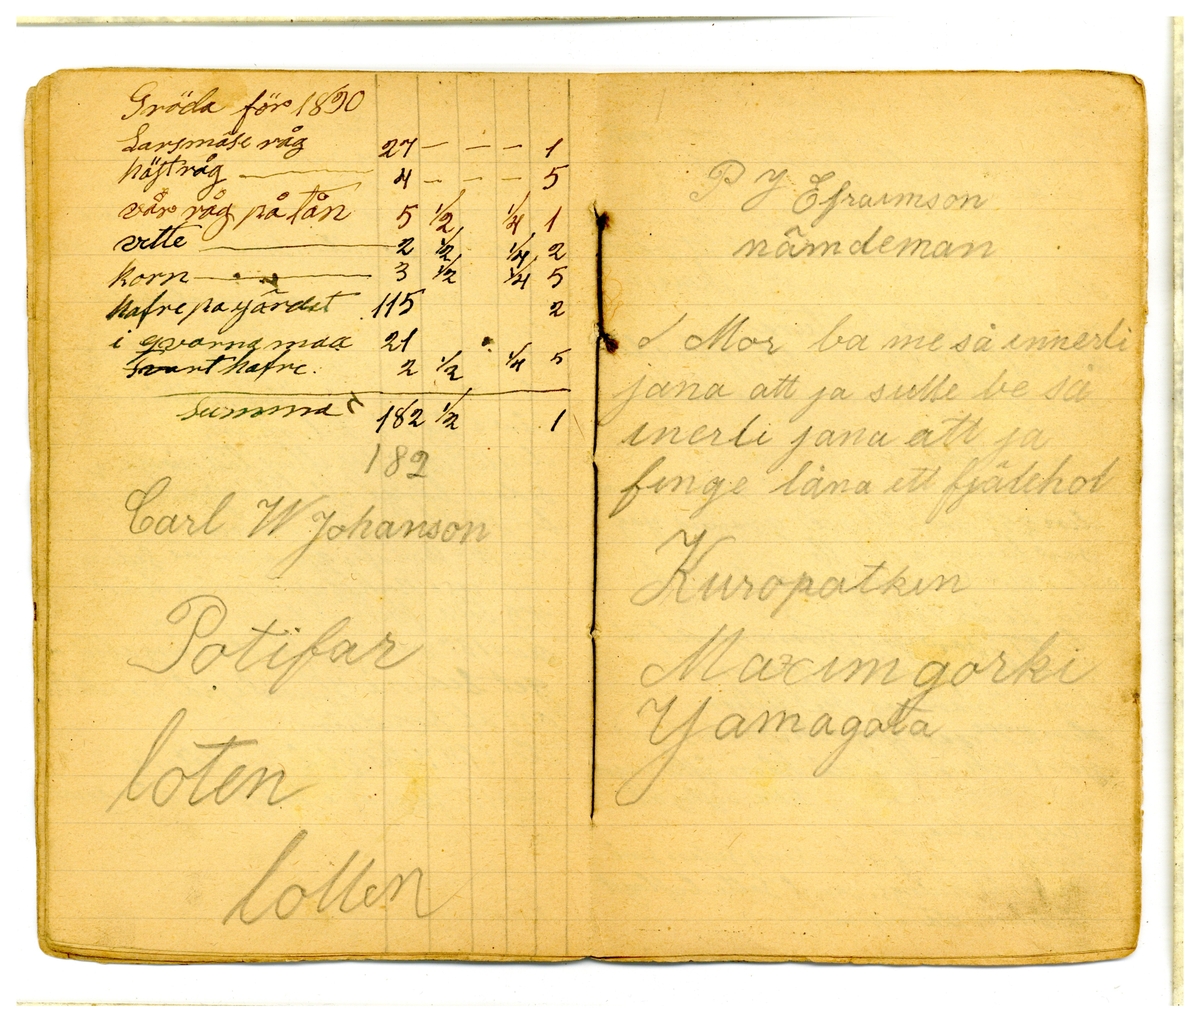 Gröda för 1890
Larsmäse råg 27 — — — 1
höstråg — 4 — — — 5
vår råg på tån 5 1/2 1/4 1
vette — 2 1/2 1/4 2
korn — 3 1/2 1/4 5
hafre pa gärdet 115 2
i qvarnamaa 21
Svart hafre. 2 1/2 1/4 5
Summa 182 1/2 1
182
Carl W Johanson
Potifar
loten
lotten
P J Efraimson
nämdeman
Mor ba me så innerli
jana att ja sulle be så
inerli jana att ja
finge låna ett fjälehol
Kuropatkin
Maxim gorki
Yamagata